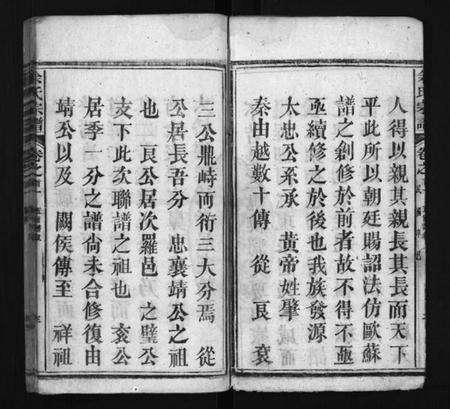 人得以親其親長其長而天下
平此所以朝廷賜詔法仿歐蘇
譜之創修於前者故不得不亟
亟續修之於後也我族發源
太岳公系承 黃帝姓肇
秦由越數十傳 從 良 衮
三公鼎峙而衍三大分焉 從
公居長吾分 忠襄靖公之祖
也 良公居次羅邑 之璧公
支下此次聯譜之祖也 衮公
居季一分之譜尙未合修復由
靖公以及 關侯傳至 祥祖